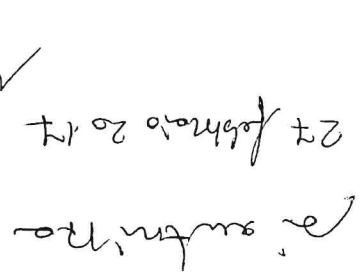 si autorizza
27 febbraio 2017